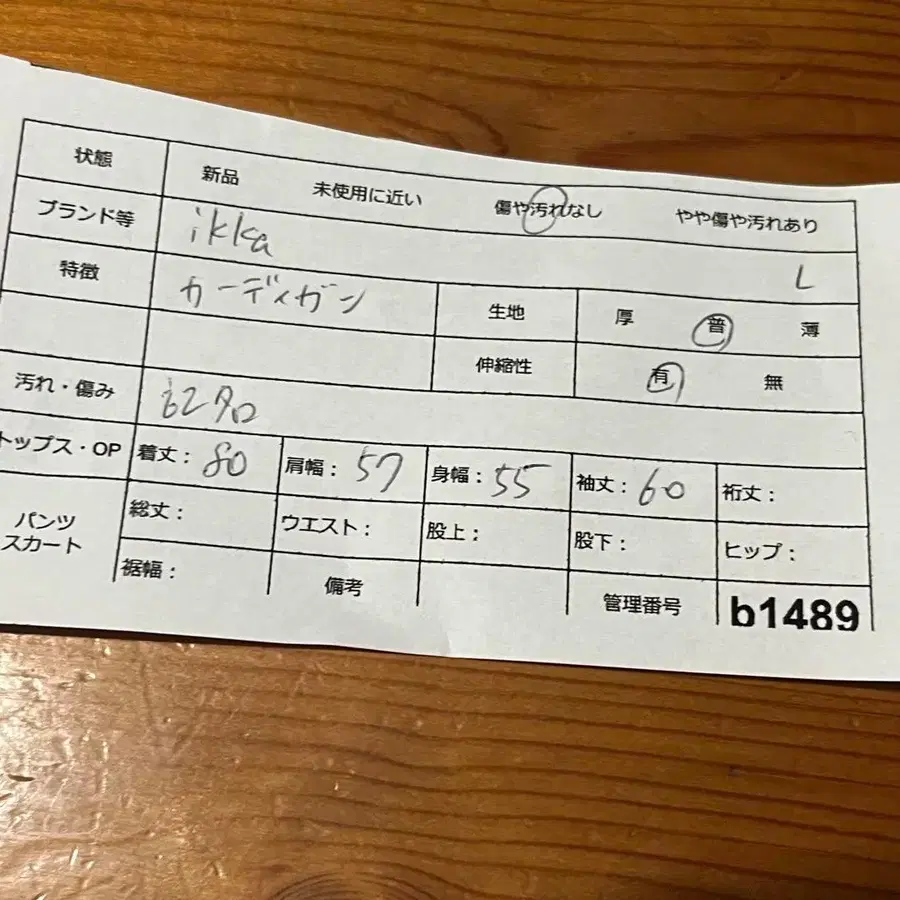 状態 新品 未使用に近い 傷や汚れなし やや傷や汚れあり
ブランド等 ikka L
特徴 カーディガン 生地 厚 普 薄
伸縮性 有 無
汚れ・傷み
トップス・OP 着丈: 80 肩幅: 57 身幅: 55 袖丈: 60 裄丈:
パンツ 総丈: ウエスト: 股上: 股下: ヒップ:
スカート
裾幅: 備考 管理番号 b1489